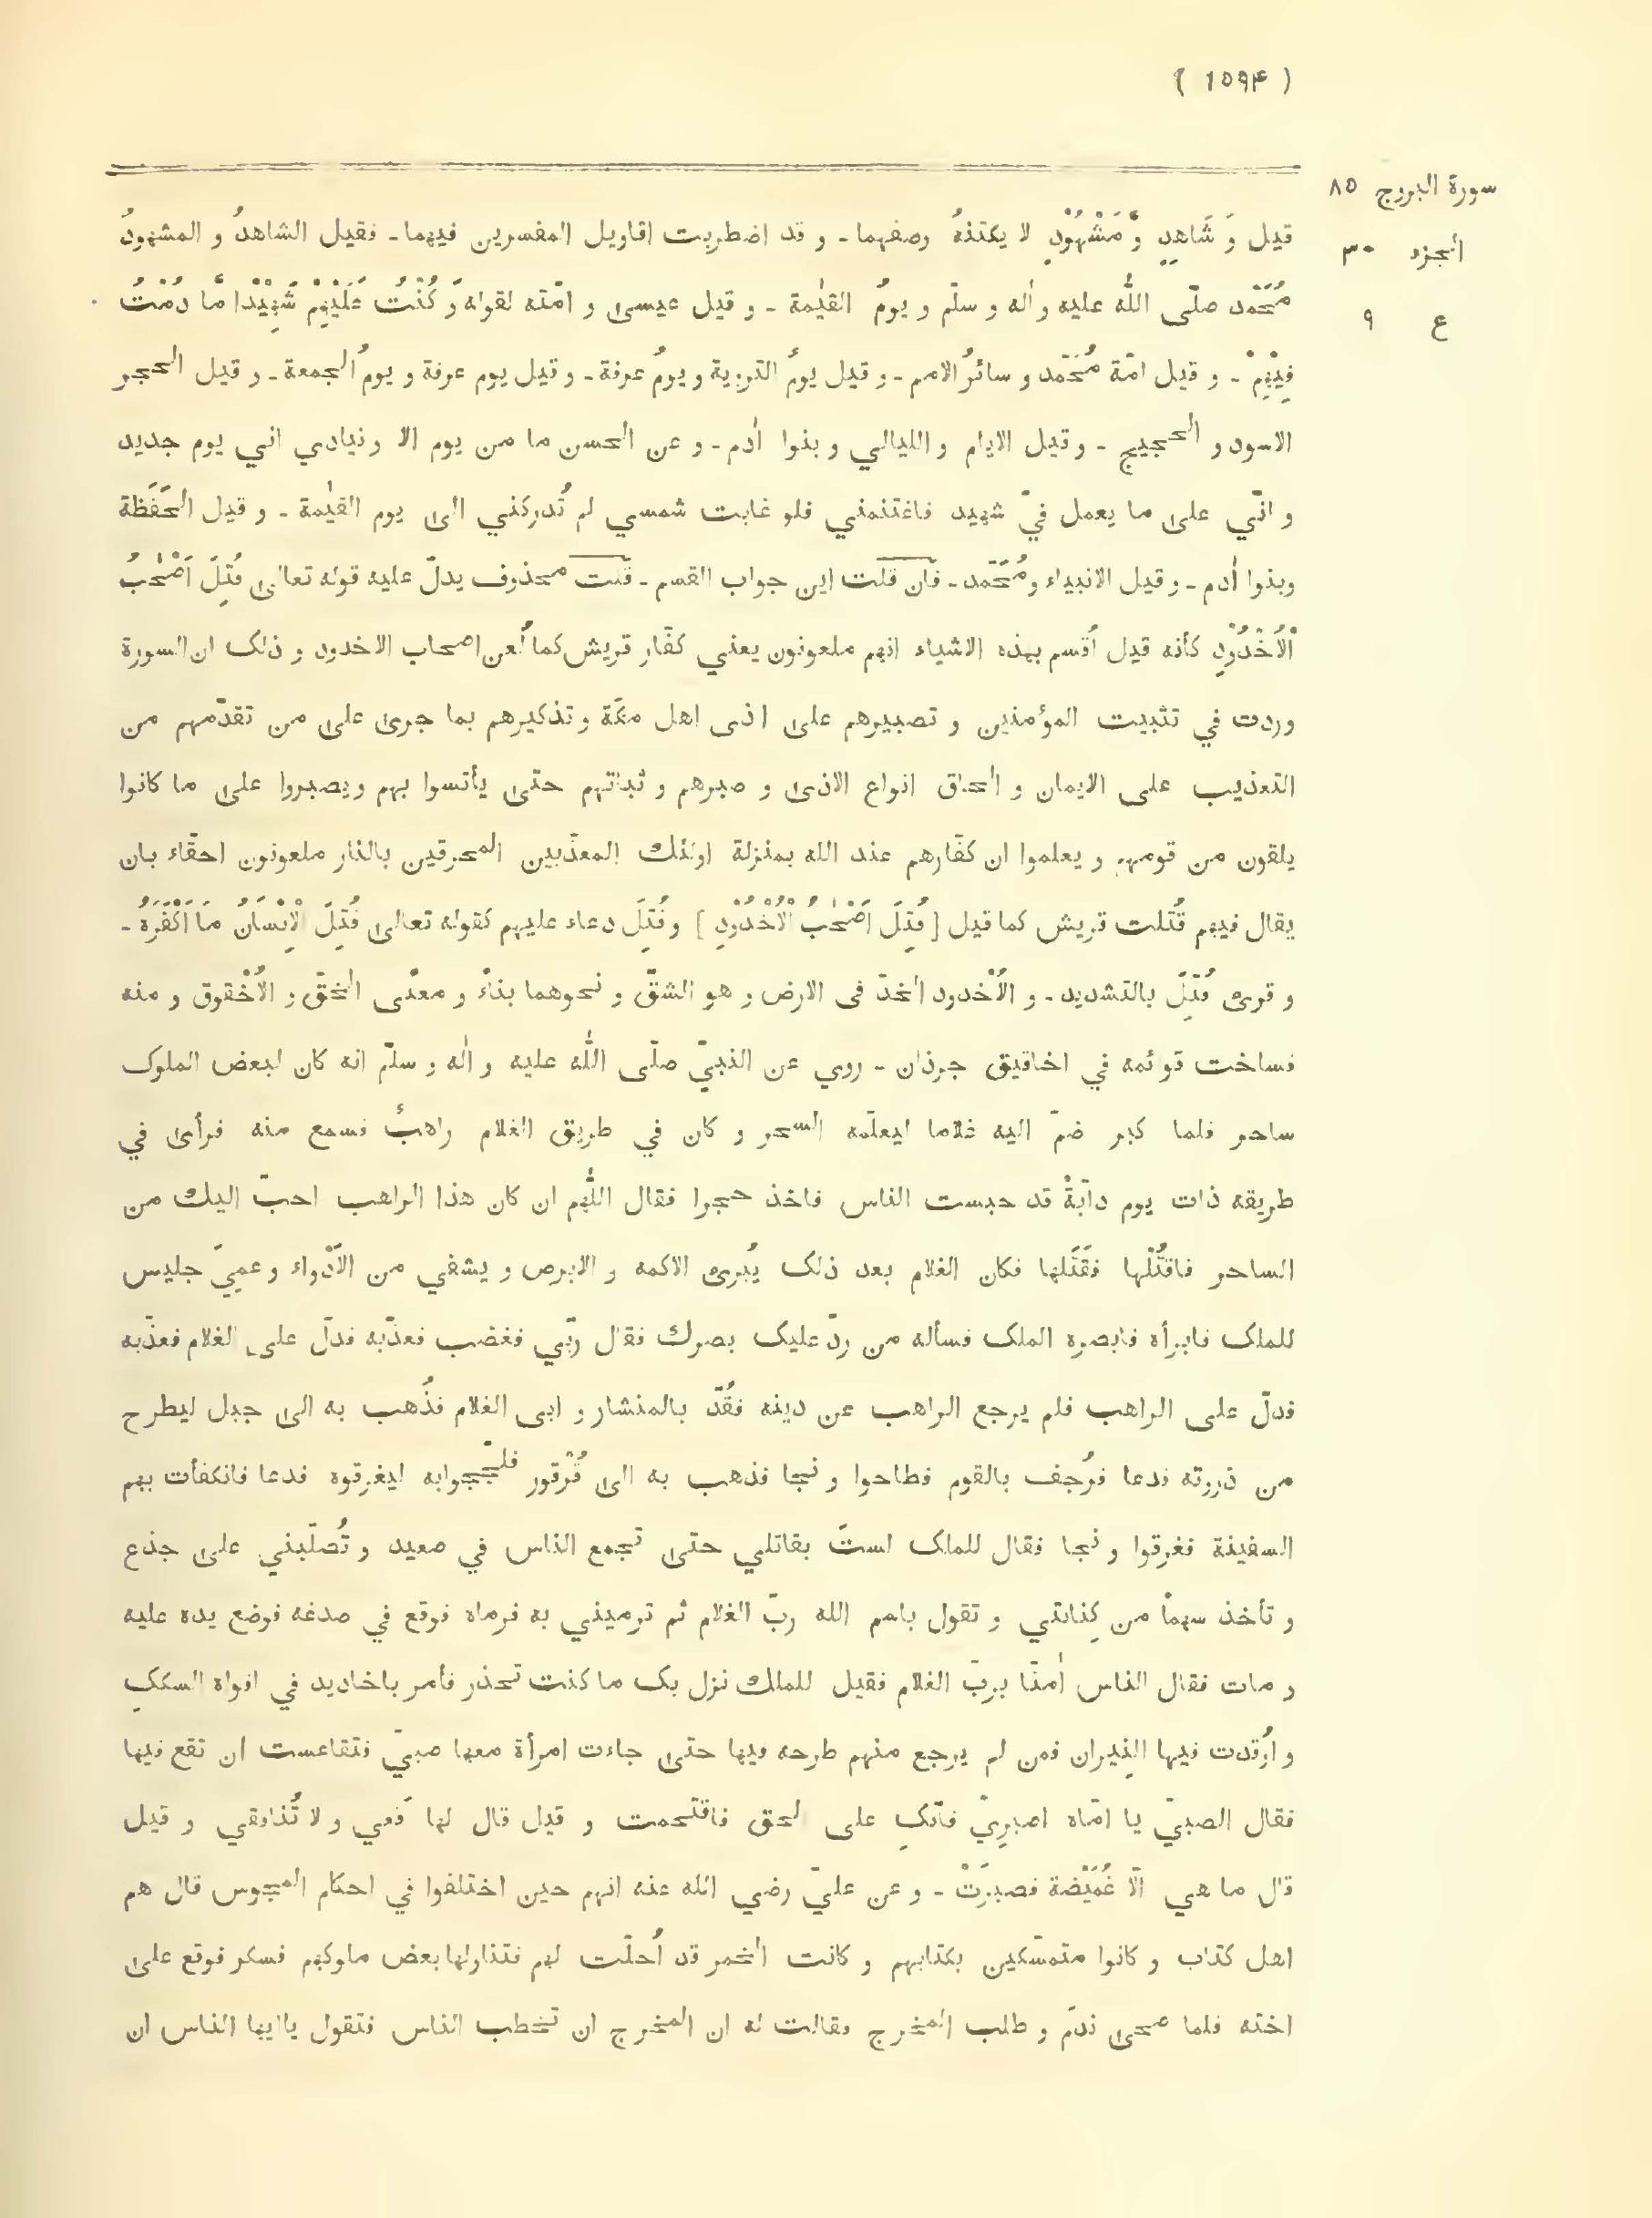 ( ١٥٩۴ )
سورة البروج ٨٥
الجزء ٣٠
ع ٩
قيل وَ شَاهِدٍ وَّ مَشْهُوْدٍ لا يكتنهُ وصفهما - و قد اضطربت اقاويل المفسرين فيهما - فقيل الشاهدُ و المشهودُ
مُحَمّد صلّى اللّٰه عليه و اٰله و سلّم و يومُ القيٰمة - و قيل عيسى و امّته لقوله وَ كُنْتُ عَلَيْهِمْ شَهِيْدًا مَّا دُمْتُ
فِيْهِمْ - و قيل امّة مُحَمّد و سائرُ الامم - و قيل يومُ التروية و يومُ عرفة - و قيل يوم عرفة و يومُ الجمعة - و قيل الحجر
الاسود و الحجيج - و قيل الايام و الليالي و بنوا اٰدم - و عن الحسن ما من يوم الا و ينادي اني يوم جديد
و انّي على ما يعمل فيّ شهيد فاغتنمني فلو غابت شمسي لم تُدركني الى يوم القيٰمة - و قيل الحَفَظة
و بنوا اٰدم - و قيل الانبياء و مُحَمّد - فان قلت اين جواب القسم - قلت محذوف يدلّ عليه قوله تعالى قُتِلَ اَصْحٰبُ
الْاُخْدُوْدِ كأنه قيل اُقسم بهذه الاشياء انهم ملعونون يعني كفّار قريش كما لُعن اصحاب الاخدود و ذلك ان السورة
وردت في تثبيت المؤمنين و تصبيرهم على اذى اهل مكّة و تذكيرهم بما جرى على من تقدّمهم من
التعذيب على الايمان و الحاق انواع الاذى و صبرهم و ثباتهم حتى يأتسوا بهم و يصبروا على ما كانوا
يلقون من قومهم و يعلموا ان كفّارهم عند الله بمنزلة اولئك المعذّبين المحرقين بالنار ملعونون احقّاء بان
يقال فيهم قُتلت قريش كما قيل [ قُتِلَ اَصْحٰبُ الْاُخْدُوْدِ ] و قُتِلَ دعاء عليهم كقوله تعالى قُتِلَ الْاِنْسَانُ مَا اَكْفَرَهٗ -
و قرئ قُتِّلَ بالتشديد - و الْاُخْدود الخدّ فى الارض و هو الشقّ و نحوهما بناءً و معنًى الخقّ و الْاُخْقوق و منه
فساخت قوائمه في اخاقيق جرذان - روي عن النبيّ صلّى اللّٰه عليه و اٰله و سلّم انه كان لبعض الملوك
ساحر فلما كبر ضمّ اليه غلاما ليعلّمه السحر و كان في طريق الغلام راهبٌ فسمع منه فرأى في
طريقه ذات يوم دابّةً قد حبست الناس فاخذ حجرا فقال اللّٰهم ان كان هذا الراهب احبّ اليك من
الساحر فاقتُلْها فقَتَلها فكان الغلام بعد ذلك يُبرئ الاكمه و الابرص و يشفي من الاَدْواء و عميَ جليس
للملك فابرأه فابصره الملك فسأله من ردّ عليك بصرك فقال ربّي فغضب فعذّبه فدلّ على الغلام فعذّبه
فدلّ على الراهب فلم يرجع الراهب عن دينه فقُدّ بالمنشار و ابى الغلام فذُهب به الى جبل ليطرح
من ذروته فدعا فرُجف بالقوم فطاحوا و نجا فذهب به الى قُرْقور فلجّجوا به ليغرقوه فدعا فانكفأت بهم
السفينة فغرقوا و نجا فقال للملك لستَ بقاتلي حتى تجمع الناس في صعيد و تُصلّبني على جذع
و تأخذ سهمًا من كِنانتي و تقول باسم الله ربّ الغلام ثم ترميني به فرماه فوقع في صدغه فوضع يده عليه
و مات فقال الناس اٰمنّا بربّ الغلام فقيل للملك نزل بك ما كنت تحذر فأمر باخاديد في افواه السككِ
و اُوقدت فيها النِيران فمن لم يرجع منهم طرحه فيها حتى جاءت امرأة معها صبيّ فتقاعست ان تقع فيها
فقال الصبيّ يا امّاه اصبرِيْ فانّكِ على الحق فاقتحمت و قيل قال لها قَعي و لا تُنافقي و قيل
قال ما هي الّا غُمَيْضة فصبَرَتْ - و عن عليّ رضي الله عنه انهم حين اختلفوا في احكام المجوس قال هم
اهل كتاب و كانوا متمسّكين بكتابهم و كانت الخمر قد اُحلّت لهم فتناولها بعض ملوكهم فسكر فوقع على
اخته فلما صحى ندم و طلب المخرج فقالت له ان المخرج ان تخطب الناس فتقول يا ايها الناس ان